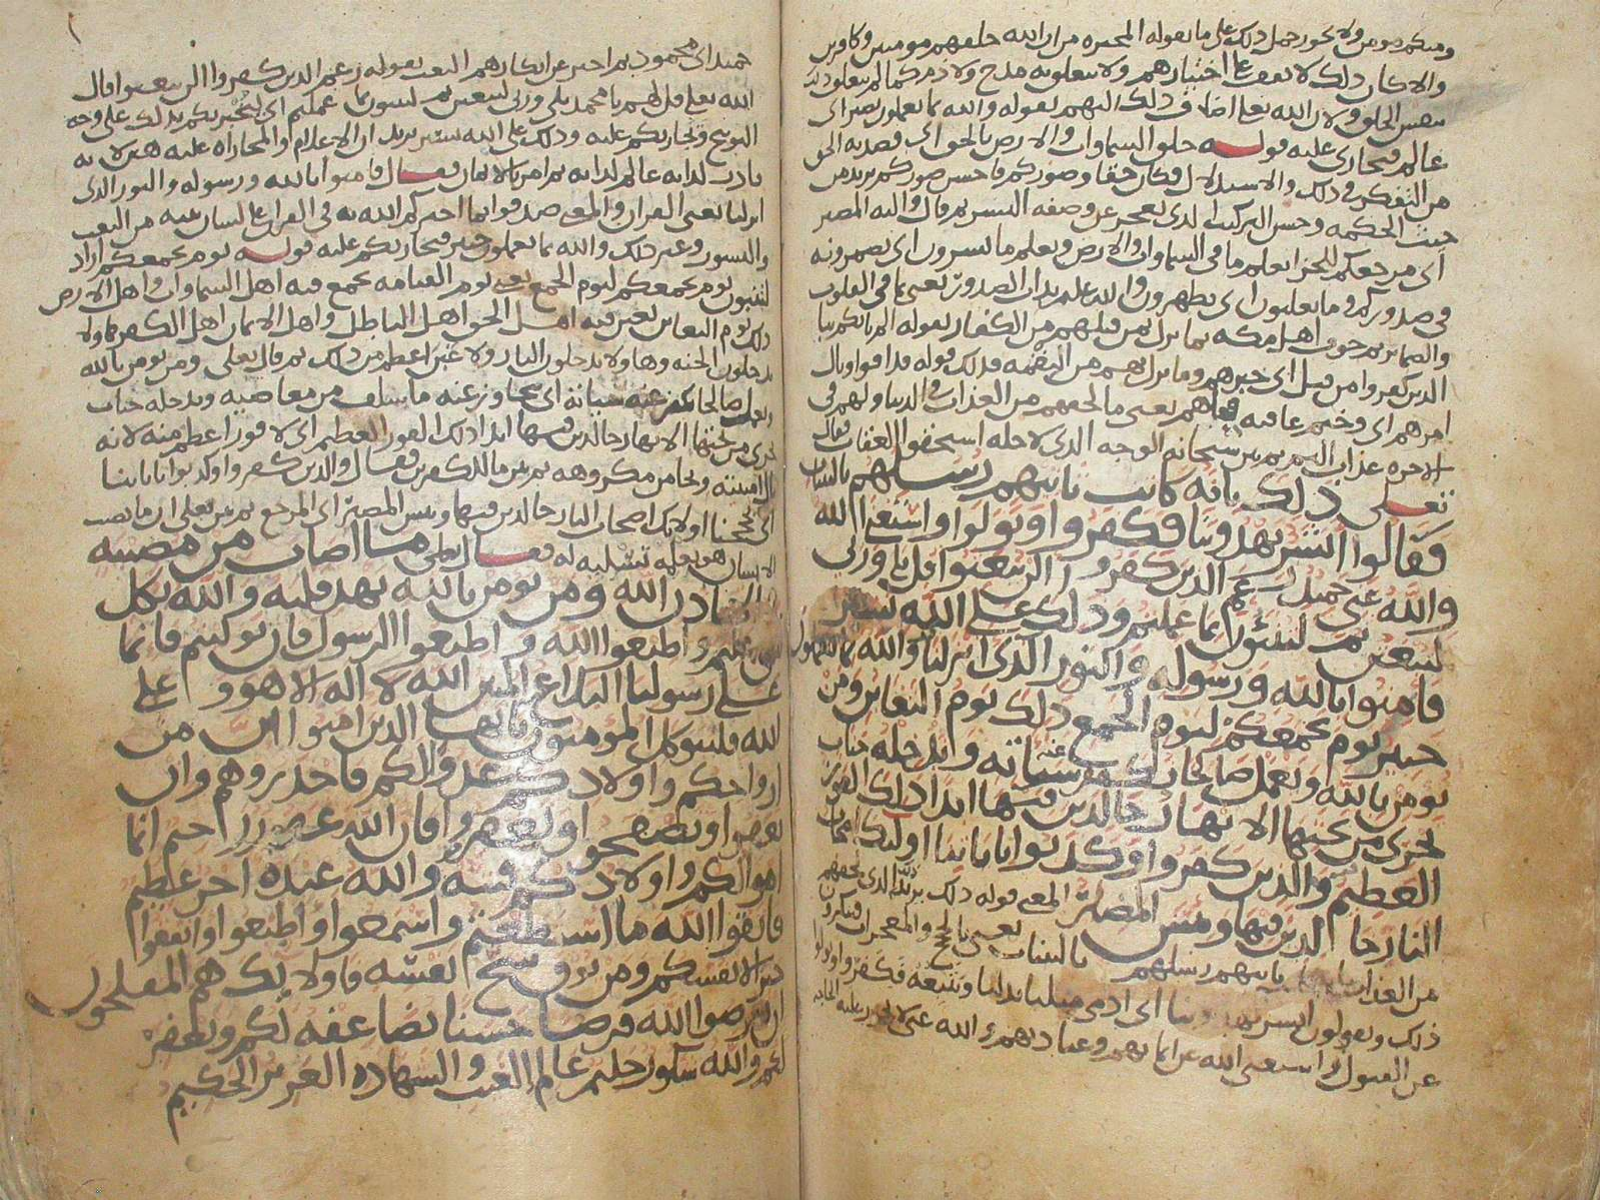 ومنكم مومن ولا يجوز حمل ذلك على ما يقوله المجبره من ان الله خلقهم مومنين وكافرين
والا كان ذلك لا يقف على اختيارهم ولا يتعلق به مدح ولا ذم كما لم يتعلق ذلك
بنفس الخلق ولان الله تعالى اضاف ذلك اليهم بقوله والله بما تعملون بصير اى
عالم فيجازى عليه قوله خلق السماوات والارض بالحق اى قصد به الحق
من التفكر فى ذلك والاستدلال فكان حقا وصوركم فاحسن صوركم يريد من
حيث الحكمه وحسن التركيب الذى يعجز عن وصفه البشر ثم قال واليه المصير
اى مرجعكم للجزا يعلم ما فى السماوات والارض ويعلم ما تسرون اى تضمرونه
فى صدوركم وما تعلنون اى تظهرون والله عليم بذات الصدور يعنى بما فى القلوب
والضمائر ثم خوف اهل مكه بما نزل بمن قبلهم من الكفار بقوله الم ياتكم نبا
الذين كفروا من قبل اى خبرهم وما نزل بهم من النقمه فذلك قوله فذاقوا وبال
امرهم اى وخيم عاقبه فعلهم يعنى ما لحقهم من العذاب فى الدنيا ولهم فى
الاخره عذاب اليم ثم بين سبحانه الوجه الذى لاجله استحقوا العقاب فقال
تعالى ذلك بانه كانت تاتيهم رسلهم بالبينات
فقالوا ابشر يهدوننا فكفروا وتولوا واستغنى الله
والله غنى حميد زعم الذين كفروا ان لن يبعثوا قل بلى وربى
لتبعثن ثم لتنبئون بما عملتم وذلك على الله يسير
فامنوا بالله ورسوله والنور الذى انزلنا والله بما تعملون
خبير يوم يجمعكم ليوم الجمع ذلك يوم التغابن ومن
يومن بالله ويعمل صالحا يكفر عنه سياته ويدخله جنات
تجرى من تحتها الانهار خالدين فيها ابدا ذلك الفوز
العظيم والذين كفروا وكذبوا باياتنا اولئك اصحاب
النار خالدين فيها وبئس المصير المعنى قوله ذلك يريد الذى لحقهم
من العذاب بانه كانت تاتيهم رسلهم بالبينات يعنى بالحجج والمعجزات فينكروا
ذلك ويقولون ابشر يهدوننا اى ادمى مثلنا ونتبعه فكفروا وتولوا
عن القبول واستغنى الله عن ايمانهم وعبادتهم والله غنى
حميد اى محمود ثم اخبر عن انكارهم البعث بقوله زعم الذين كفروا ان لن يبعثوا فقال
الله تعالى قل لهم يا محمد بلى وربى لتبعثن ثم لتنبؤن بما عملتم اى لتخبر بكم بذلك على وجه
التوبيخ ونجازيكم عليه وذلك على الله يسير يريد ان الاعلام والمجازاه عليه هين لانه
قادر لذاته عالم لذاته ثم امر بالايمان فقال فامنوا بالله ورسوله والنور الذى
انزلنا يعنى القران والمعنى صدقوا بما اخبركم الله به فى القران على لسان نبيه من البعث
والنشور وغير ذلك والله بما تعملون خبير فيجازيكم عليه قوله يوم يجمعكم اراد
لتنبئون يوم يجمعكم ليوم الجمع يعنى يوم القيامه يجمع فيه اهل السماوات واهل الارض
ذلك يوم التغابن يغبن فيه اهل الحق اهل الباطل واهل الايمان اهل الكفر هاولا
يدخلون الجنه وهاولا يدخلون النار ولا غبن اعظم من ذلك ثم قال تعالى ومن يومن بالله
ويعمل صالحا يكفر عنه سياته اى يتجاوز عنه ما سلف من معاصيه ويدخله جنات
تجرى من تحتها الانهار خالدين فيها ابدا ذلك الفوز العظيم اى لا فوز اعظم منه لانه
نال امنيته ونجا من مكروهه ثم بين ما للكفرين فقال والذين كفروا وكذبوا باياتنا
اى بحججنا اولائك اصحاب النار خالدين فيها وبئس المصير اى المرجع ثم بين تعالى ان ما يصيب
الانسان هو بعلمه تسليه له فقال تعالى ما اصاب من مصيبه
الا باذن الله ومن يومن بالله يهد قلبه والله بكل
شى عليم واطيعوا الله واطيعوا الرسول فان توليتم فانما
على رسولنا البلاغ المبين الله لا اله الا هو وعلى
الله فليتوكل المومنون يا ايها الذين امنوا ان من
ازواجكم واولادكم عدوا لكم فاحذروهم وان
تعفوا وتصفحوا وتغفروا فان الله غفور رحيم انما
اموالكم واولادكم فتنه والله عنده اجر عظيم
فاتقوا الله ما استطعتم واسمعوا واطيعوا وانفقوا
خيرا لانفسكم ومن يوق شح نفسه فاولائك هم المفلحون
ان تقرضوا الله قرضا حسنا يضاعفه لكم ويغفر
لكم والله شكور حليم عالم الغيب والشهاده العزيز الحكيم